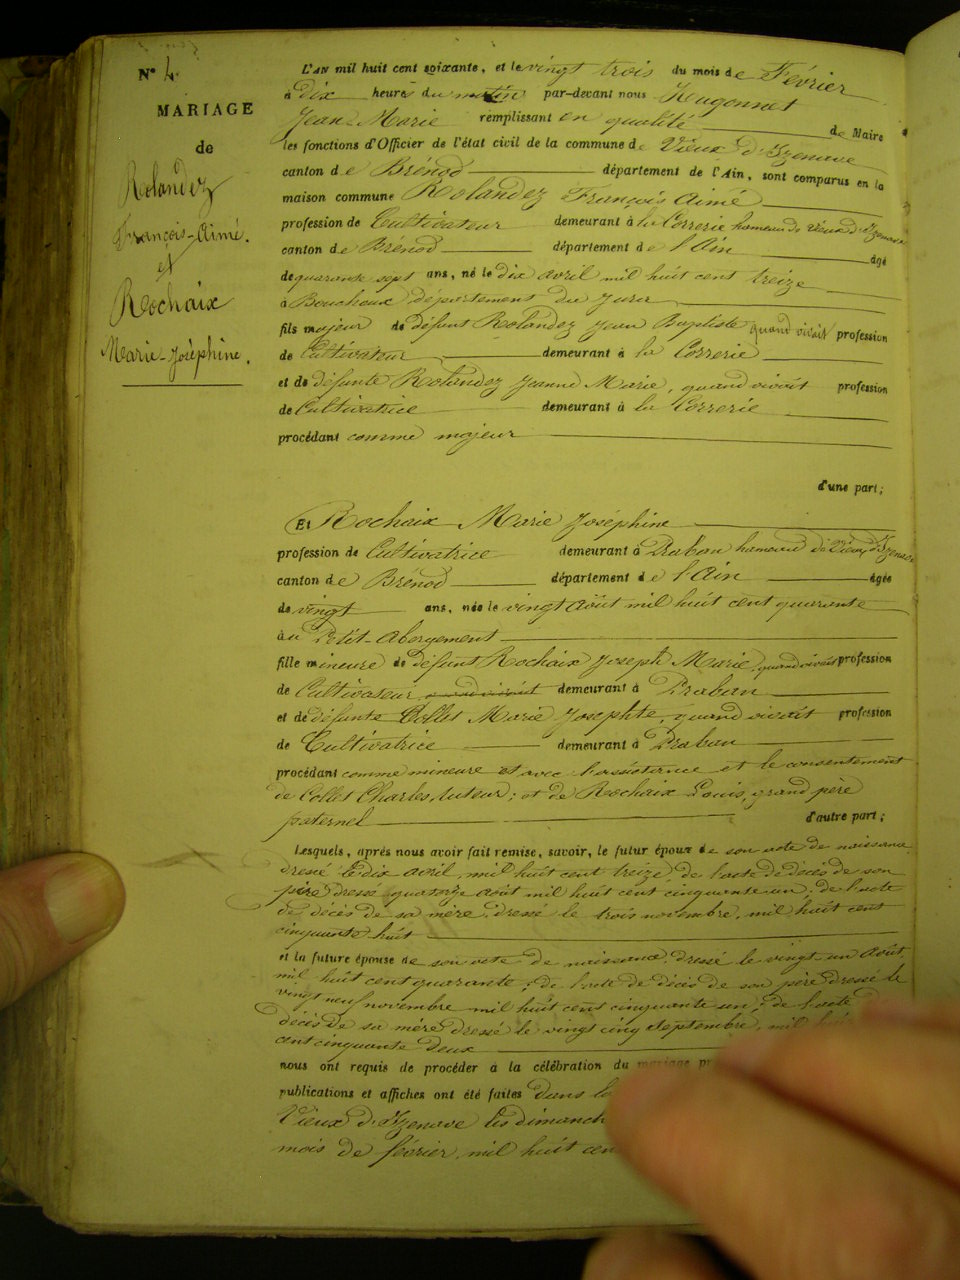 N° 4.
MARIAGE
de
Rolandez
François-Aimé.
et
Rochaix
Marie-Josèphine.
L'AN mil huit cent soixante, et le vingt trois du mois de Février
à dix heures du matin par-devant nous Hugonnet
Jean-Marie remplissant en qualité de Maire
les fonctions d'Officier de l'état civil de la commune de Vieux d'Izenave
canton de Brénod département de l'Ain, sont comparus en la
maison commune Rolandez François Aimé
profession de Cultivateur demeurant à la Correrie hameau de Vieux d'Izenave
canton de Brénod département de l'Ain âgé
de quarante sept ans, né le dix avril mil huit cent treize
à Bouchoux département du Jura
fils majeur de défunt Rolandez Jean Baptiste quand vivait profession
de Cultivateur demeurant à la Correrie
et de défunte Rolandez Jeanne Marie, quand vivait profession
de Cultivatrice demeurant à la Correrie
procédant comme majeur
d'une part;
Et Rochaix Marie Josèphine
profession de Cultivatrice demeurant à Praban hameau de Vieux d'Izenave
canton de Brénod département de l'Ain âgée
de vingt ans, née le vingt août mil huit cent quarante
au Petit-Abergement
fille mineure de défunt Rochaix Joseph Marie, quand vivait profession
de Cultivateur quand vivait demeurant à Praban
et de défunte Collet Marie Josephte, quand vivait profession
de Cultivatrice demeurant à Praban
procédant comme mineure et avec l'assistance et le consentement
de Collet Charles, tuteur; et de Rochaix Louis, grand père
paternel d'autre part;
Lesquels, après nous avoir fait remise, savoir, le futur époux de son acte de naissance
dressé le dix avril, mil huit cent treize, de l'acte de décès de son
père dressé quatorze août mil huit cent cinquante un; de l'acte
de décès de sa mère, dressé le trois novembre, mil huit cent
cinquante huit
et la future épouse de son acte de naissance, dressé le vingt un Août,
mil huit cent quarante; de l'acte de décès de son père dressé le
vingt neuf novembre mil huit cent cinquante un; de l'acte
décès de sa mère dressé le vingt cinq septembre, mil
cent cinquante deux
nous ont requis de procéder à la célébration du mariage
publications et affiches ont été faites dans
Vieux d'Izenave les dimanch
mois de février, mil huit cen